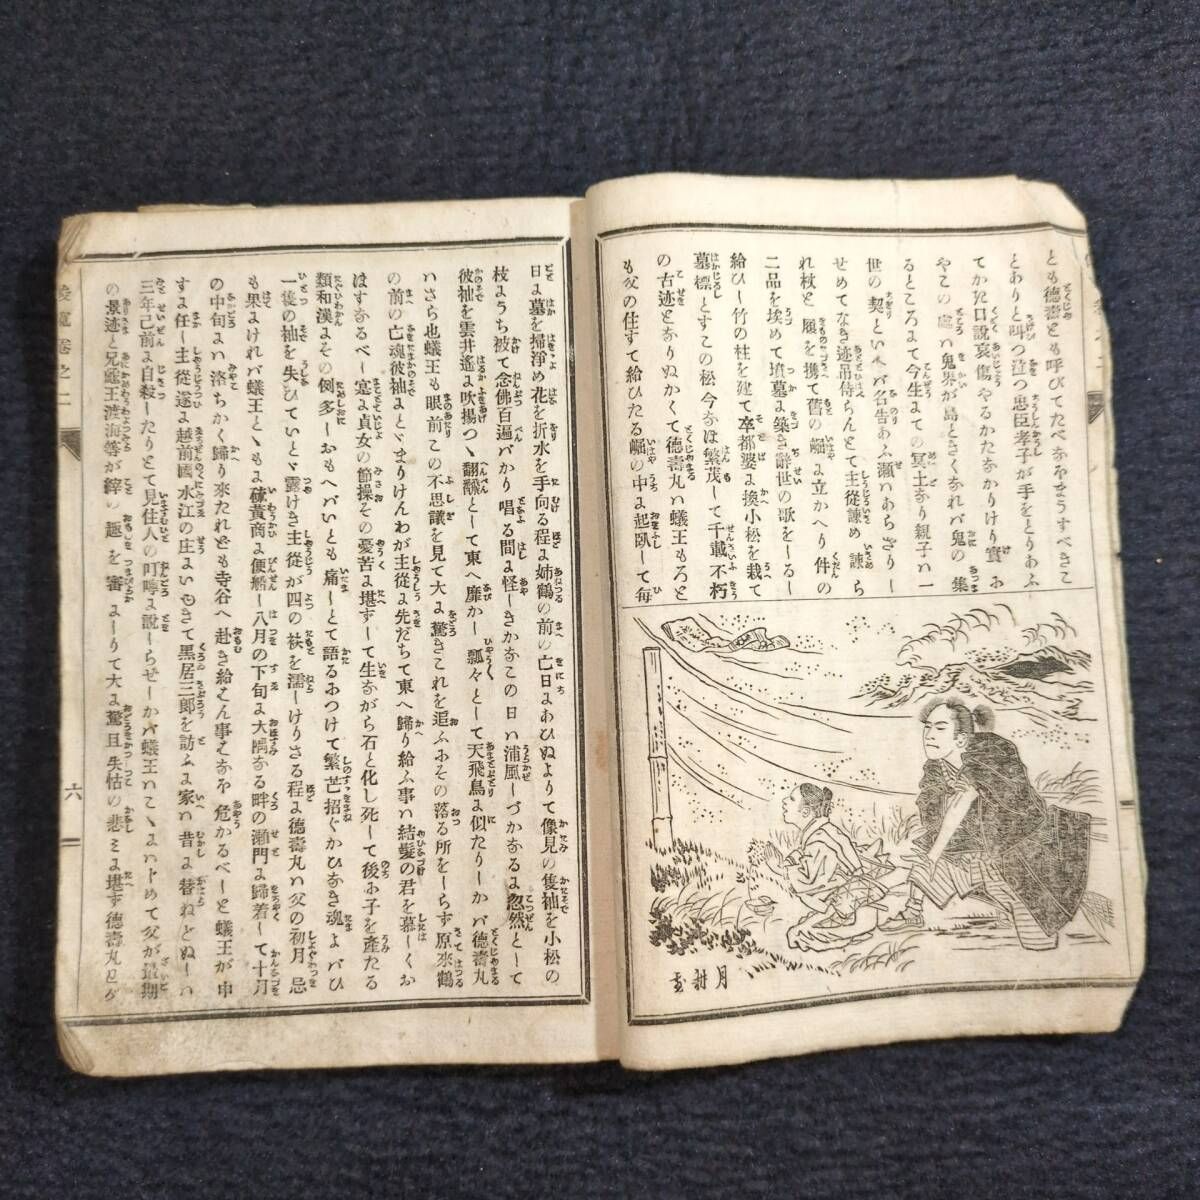 とも德壽とも呼びてたべなまうすべきこ
とありと叫つ泣つ忠臣孝子が手をとりあふ
てかたみに口說哀傷やるかたなかりけり實お
やこの處ハ鬼界が島ときくなれバ鬼の集
るところよて今生ての冥土なり親子ハ一
世の契といへバ名告あふ瀨もあらざりし
せめてなき迹吊侍らんとて主從諫め諫ら
れ杖と履を携て舊の崛よ立かへり件の
二品を埋めて墳墓よ築き辭世の歌をしるし
給ひし竹の柱を建て卒都婆よ換小松を栽て
墓標とすこの松今なほ繁茂して千載不朽
の古迹となりぬかくて德壽丸ハ蟻王もろと
も父の住すて給ひたる崛の中よ起臥して每
月耕画
日よ墓を掃淨め花を折水を手向る程よ姉鶴の前の亡日よあひぬよりて像見の隻袖を小松の
枝ようち被て念佛百遍バかり唱る間よ怪しきかなこの日ハ浦風しづかなるよ忽然として
彼袖を雲井遙よ吹揚つゝ翻飜として東へ靡かし瓢々として天飛鳥よ似たりしかバ德壽丸
ハさら也蟻王も眼前この不思議を見て大よ驚きこれを追ふよその落る所をしらず原來鶴
の前の亡魂彼袖よとゞまりけんわが主從よ先だちて東へ歸り給ふ事ハ結髮の君を慕しくお
はすなるべし寔よ貞女の節操その憂苦よ堪ずして生ながら石と化し死して後よ子を產たる
類和漢よその例多しおもへバいとも痛しとて語るよつけて繁芒招ぐかひなき魂よバひ
一隻の袖を失ひていとゞ露けき主從が四の袂を濡しけりさる程よ德壽丸ハ父の初月忌
も果よけれバ蟻王とゝもよ硫黃商よ便船し八月の下旬よ大隅なる畔の瀨門よ歸着して十月
の中旬よハ洛ちかく歸り來たれども寺谷へ赴き給はん事はなほ危かるべしと蟻王が申
すよ任し主從遂よ越前國水江の庄よいゆきて黑居三郎を訪ふよ家ハ昔よ替ねどぬしハ
三年已前よ自殺したりとて見住人の叮嚀よ說しらせしかバ蟻王ハこゝよハじめて父が最期
の景迹と兄龜王渡海等が縡の趣を審よしりて大よ驚且失怙の悲みよ堪ず德壽丸も
卷之二
六